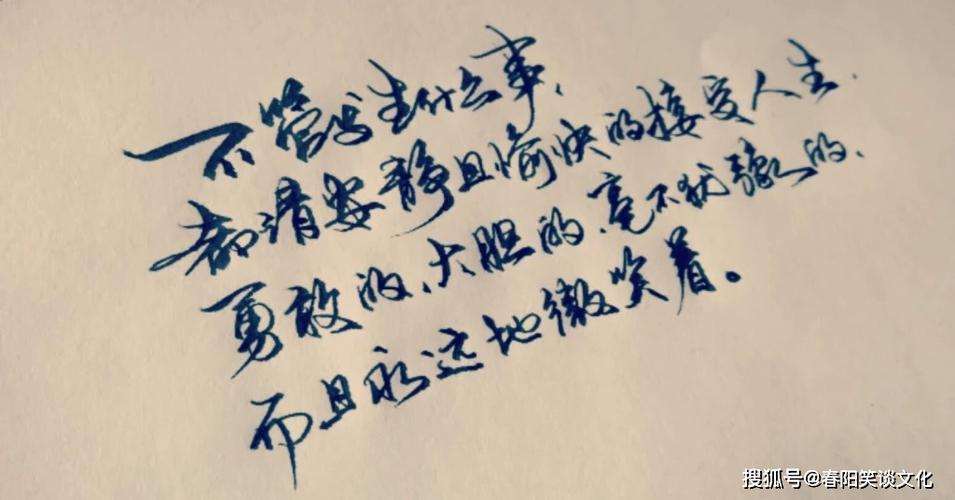 不管发生什么事，
都请安静且愉快的接受人生.
勇敢的、大胆的、毫不犹豫的、
而且永远地微笑着。
搜狐号@春阳笑谈文化